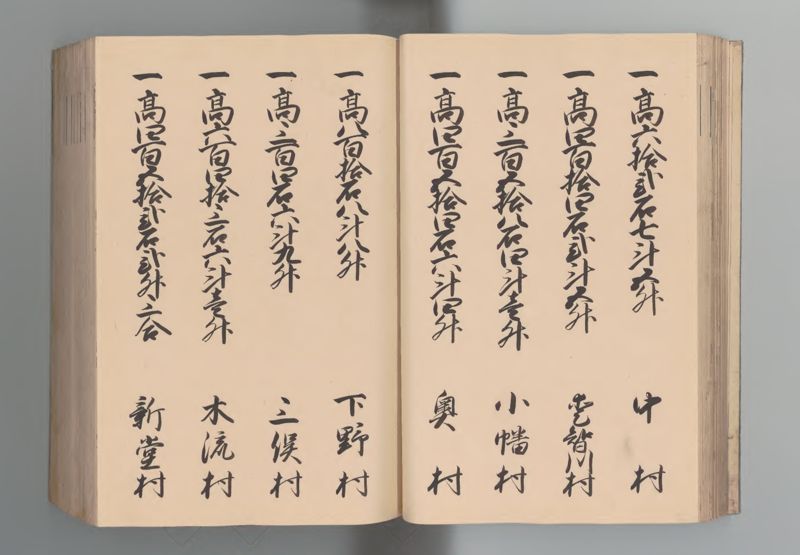 一高六拾弐石七斗五升 中村
一高四百拾四石弐斗五升 愛智川村
一高三百五拾八石四斗壱升 小幡村
一高四百五拾四石六斗四升 奥村
一高八百拾石八斗八升 下野村
一高三百四石六斗九升 三俣村
一高六百四拾三石六斗壱升 木流村
一高四百五拾弐石弐升三合 新堂村